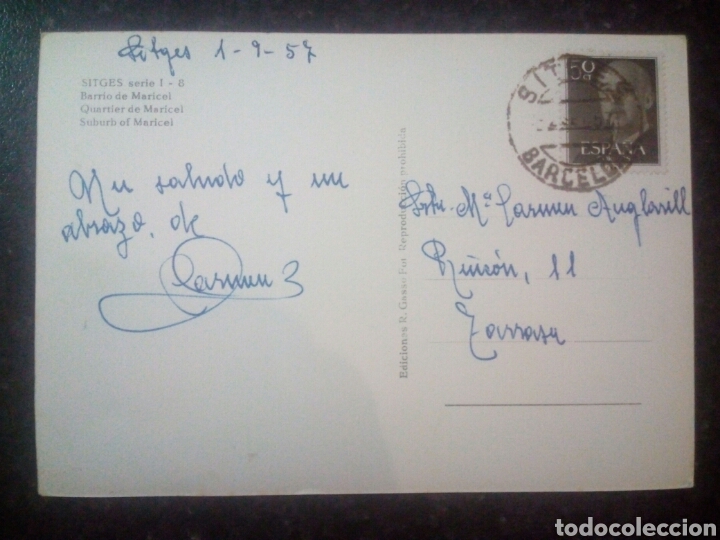 Sitges 1-9-57
SITGES serie I - 8
Barrio de Maricel
Quartier de Maricel
Suburb of Maricel
Un saludo y un
abrazo, de
Carmen
Ediciones R. Gasso Fot. Reproducción prohibida
50
CTS
ESPAÑA
SITGES
BARCELONA
Srta. Mª Carmen Anglarill
Rincón, 11
Tarrasa
todocoleccion
todocoleccion.net